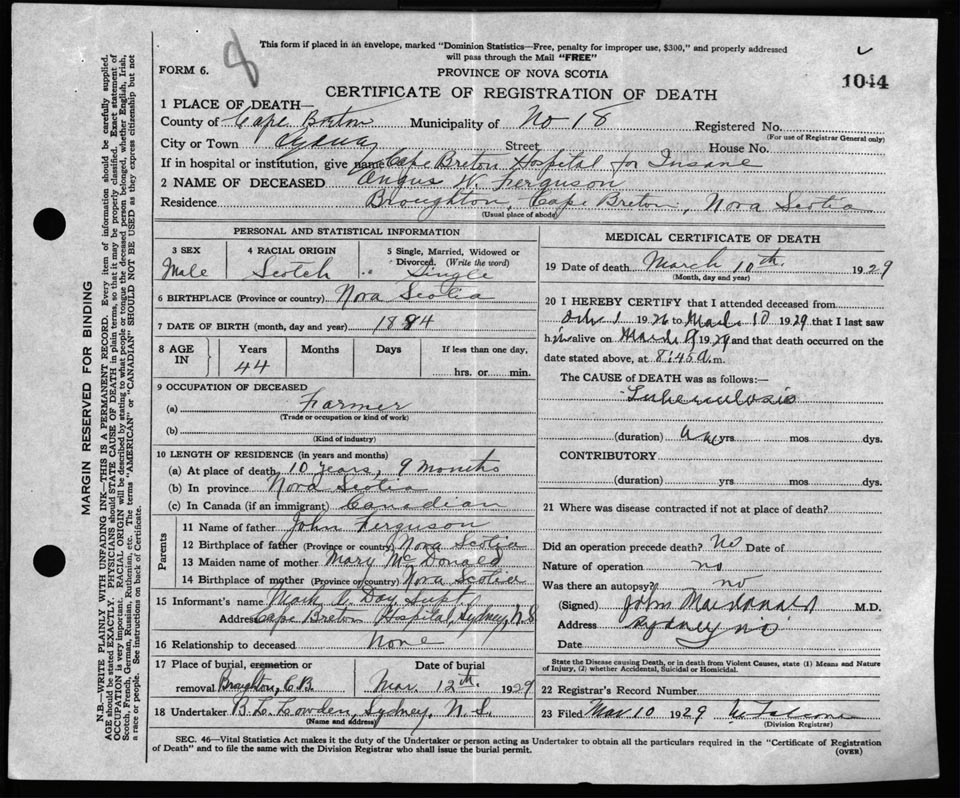 8
This form if placed in an envelope, marked "Dominion Statistics—Free, penalty for improper use, $300," and properly addressed
will pass through the Mail "FREE"
FORM 6.
PROVINCE OF NOVA SCOTIA
1044
CERTIFICATE OF REGISTRATION OF DEATH
1 PLACE OF DEATH—
County of Cape Breton Municipality of No 18 Registered No.
(For use of Registrar General only)
City or Town Street House No.
If in hospital or institution, give name Cape Breton Hospital for Insane
2 NAME OF DECEASED Angus W. Ferguson
Residence Broughton, Cape Breton, Nova Scotia
(Usual place of abode)
PERSONAL AND STATISTICAL INFORMATION
3 SEX Male
4 RACIAL ORIGIN Scotch
5 Single, Married, Widowed or Divorced. (Write the word) Single
6 BIRTHPLACE (Province or country) Nova Scotia
7 DATE OF BIRTH (month, day and year) 1884
8 AGE IN Years Months Days If less than one day,
44 hrs. or min.
9 OCCUPATION OF DECEASED
(a) Farmer
(Trade or occupation or kind of work)
(b)
(Kind of industry)
10 LENGTH OF RESIDENCE (in years and months)
(a) At place of death 10 years, 9 months
(b) In province Nova Scotia
(c) In Canada (if an immigrant) Canadian
Parents
11 Name of father John Ferguson
12 Birthplace of father (Province or country) Nova Scotia
13 Maiden name of mother Mary McDonald
14 Birthplace of mother (Province or country) Nova Scotia
15 Informant's name Day Supt.
Address Cape Breton Hospital, Sydney, N.S
16 Relationship to deceased None
17 Place of burial, cremation or removal Broughton, C.B.
Date of burial Mar. 12th. 1929
18 Undertaker Sydney, N.S.
(Name and address)
MEDICAL CERTIFICATE OF DEATH
19 Date of death March 10th. 1929
(Month, day and year)
20 I HEREBY CERTIFY that I attended deceased from
1 1926 to March 10 1929 that I last saw
him alive on March 1929 and that death occurred on the
date stated above, at 8:45 a.m.
The CAUSE of DEATH was as follows:—
Tuberculosis
(duration) yrs. mos dys.
CONTRIBUTORY
(duration) yrs. mos. dys.
21 Where was disease contracted if not at place of death?
Did an operation precede death? No Date of
Nature of operation no
Was there an autopsy? no
(Signed) John Macdonald M.D.
Address Sydney NS
Date
State the Disease causing Death, or in death from Violent Causes, state (1) Means and Nature
of Injury, (2) whether Accidental, Suicidal or Homicidal.
22 Registrar's Record Number
23 Filed Mar 10 1929
(Division Registrar)
SEC. 46—Vital Statistics Act makes it the duty of the Undertaker or person acting as Undertaker to obtain all the particulars required in the "Certificate of Registration
of Death" and to file the same with the Division Registrar who shall issue the burial permit.
(OVER)
MARGIN RESERVED FOR BINDING
N.B.—WRITE PLAINLY WITH UNFADING INK—THIS IS A PERMANENT RECORD. Every item of information should be carefully supplied.
AGE should be stated EXACTLY. PHYSICIANS should STATE CAUSE OF DEATH in plain terms, so that it may be properly classified. Exact statement of
OCCUPATION is very important. RACIAL ORIGIN will be described by stating to what people or tongue the deceased person belonged, whether English, Irish,
Scotch, French, German, Russian, Ruthenian, etc. The terms "AMERICAN" or "CANADIAN" SHOULD NOT BE USED as they express citizenship but not
a race or people. See instructions on back of Certificate.